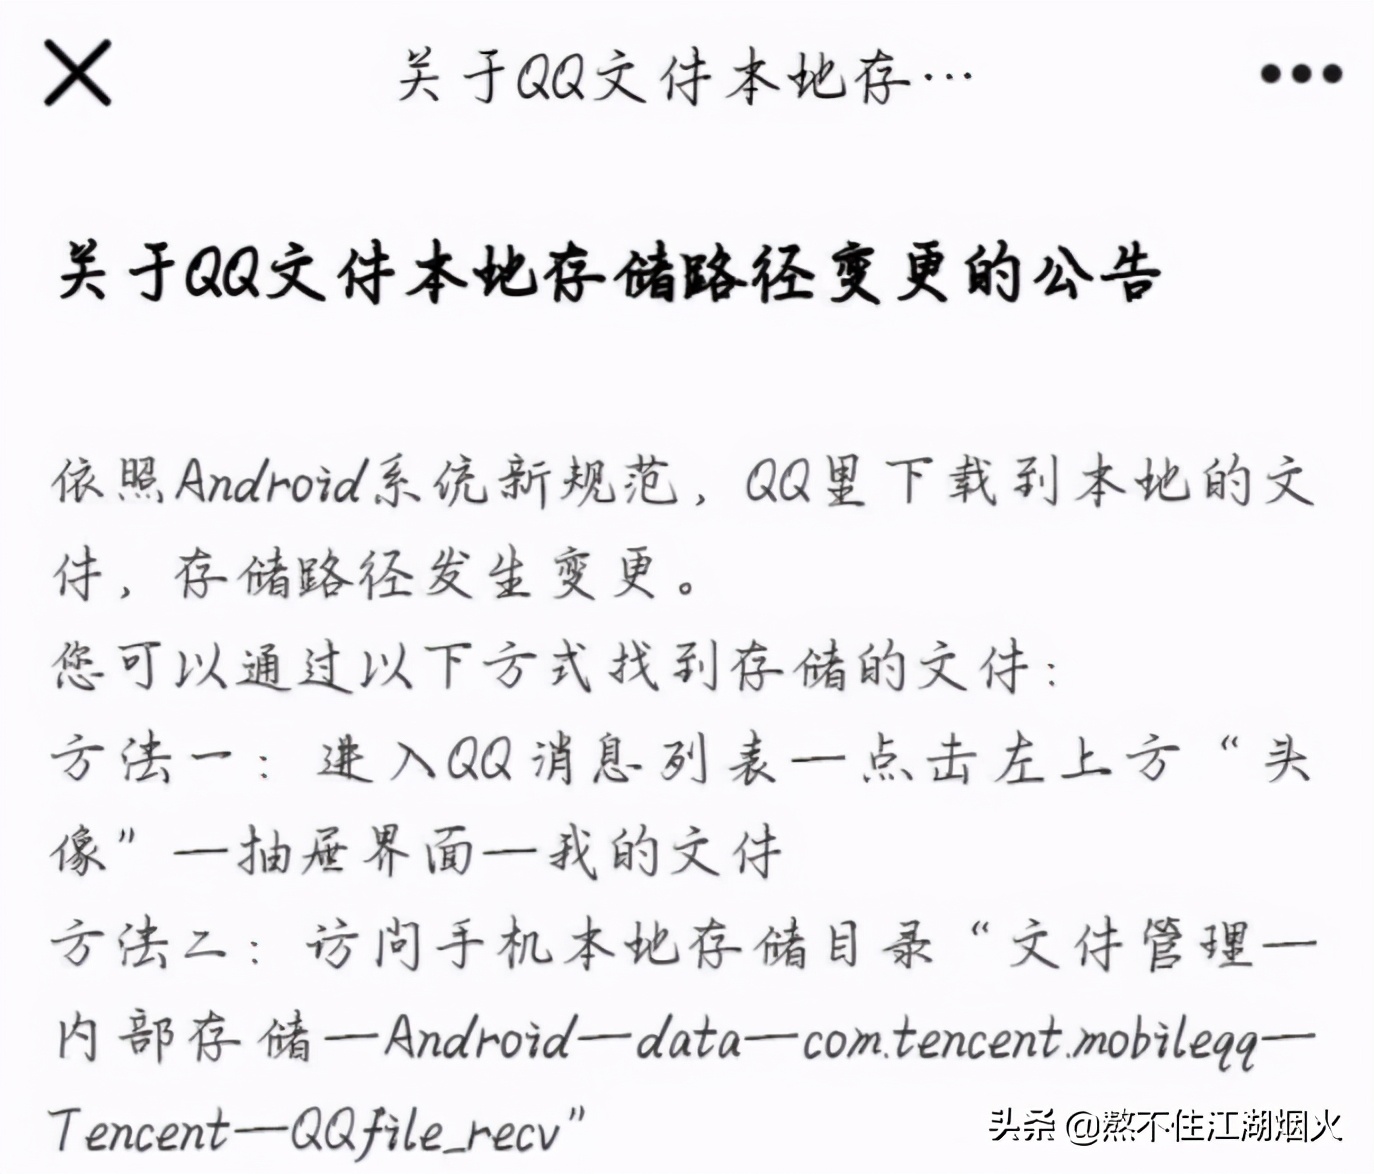 关于QQ文件本地存…
关于QQ文件本地存储路径变更的公告
依照Android系统新规范，QQ里下载到本地的文
件，存储路径发生变更。
您可以通过以下方式找到存储的文件：
方法一：进入QQ消息列表—点击左上方“头
像”—抽屉界面—我的文件
方法二：访问手机本地存储目录“文件管理—
内部存储—Android—data—com.tencent.mobileqq—
Tencent—QQfile_recv”
头条 @熬不住江湖烟火